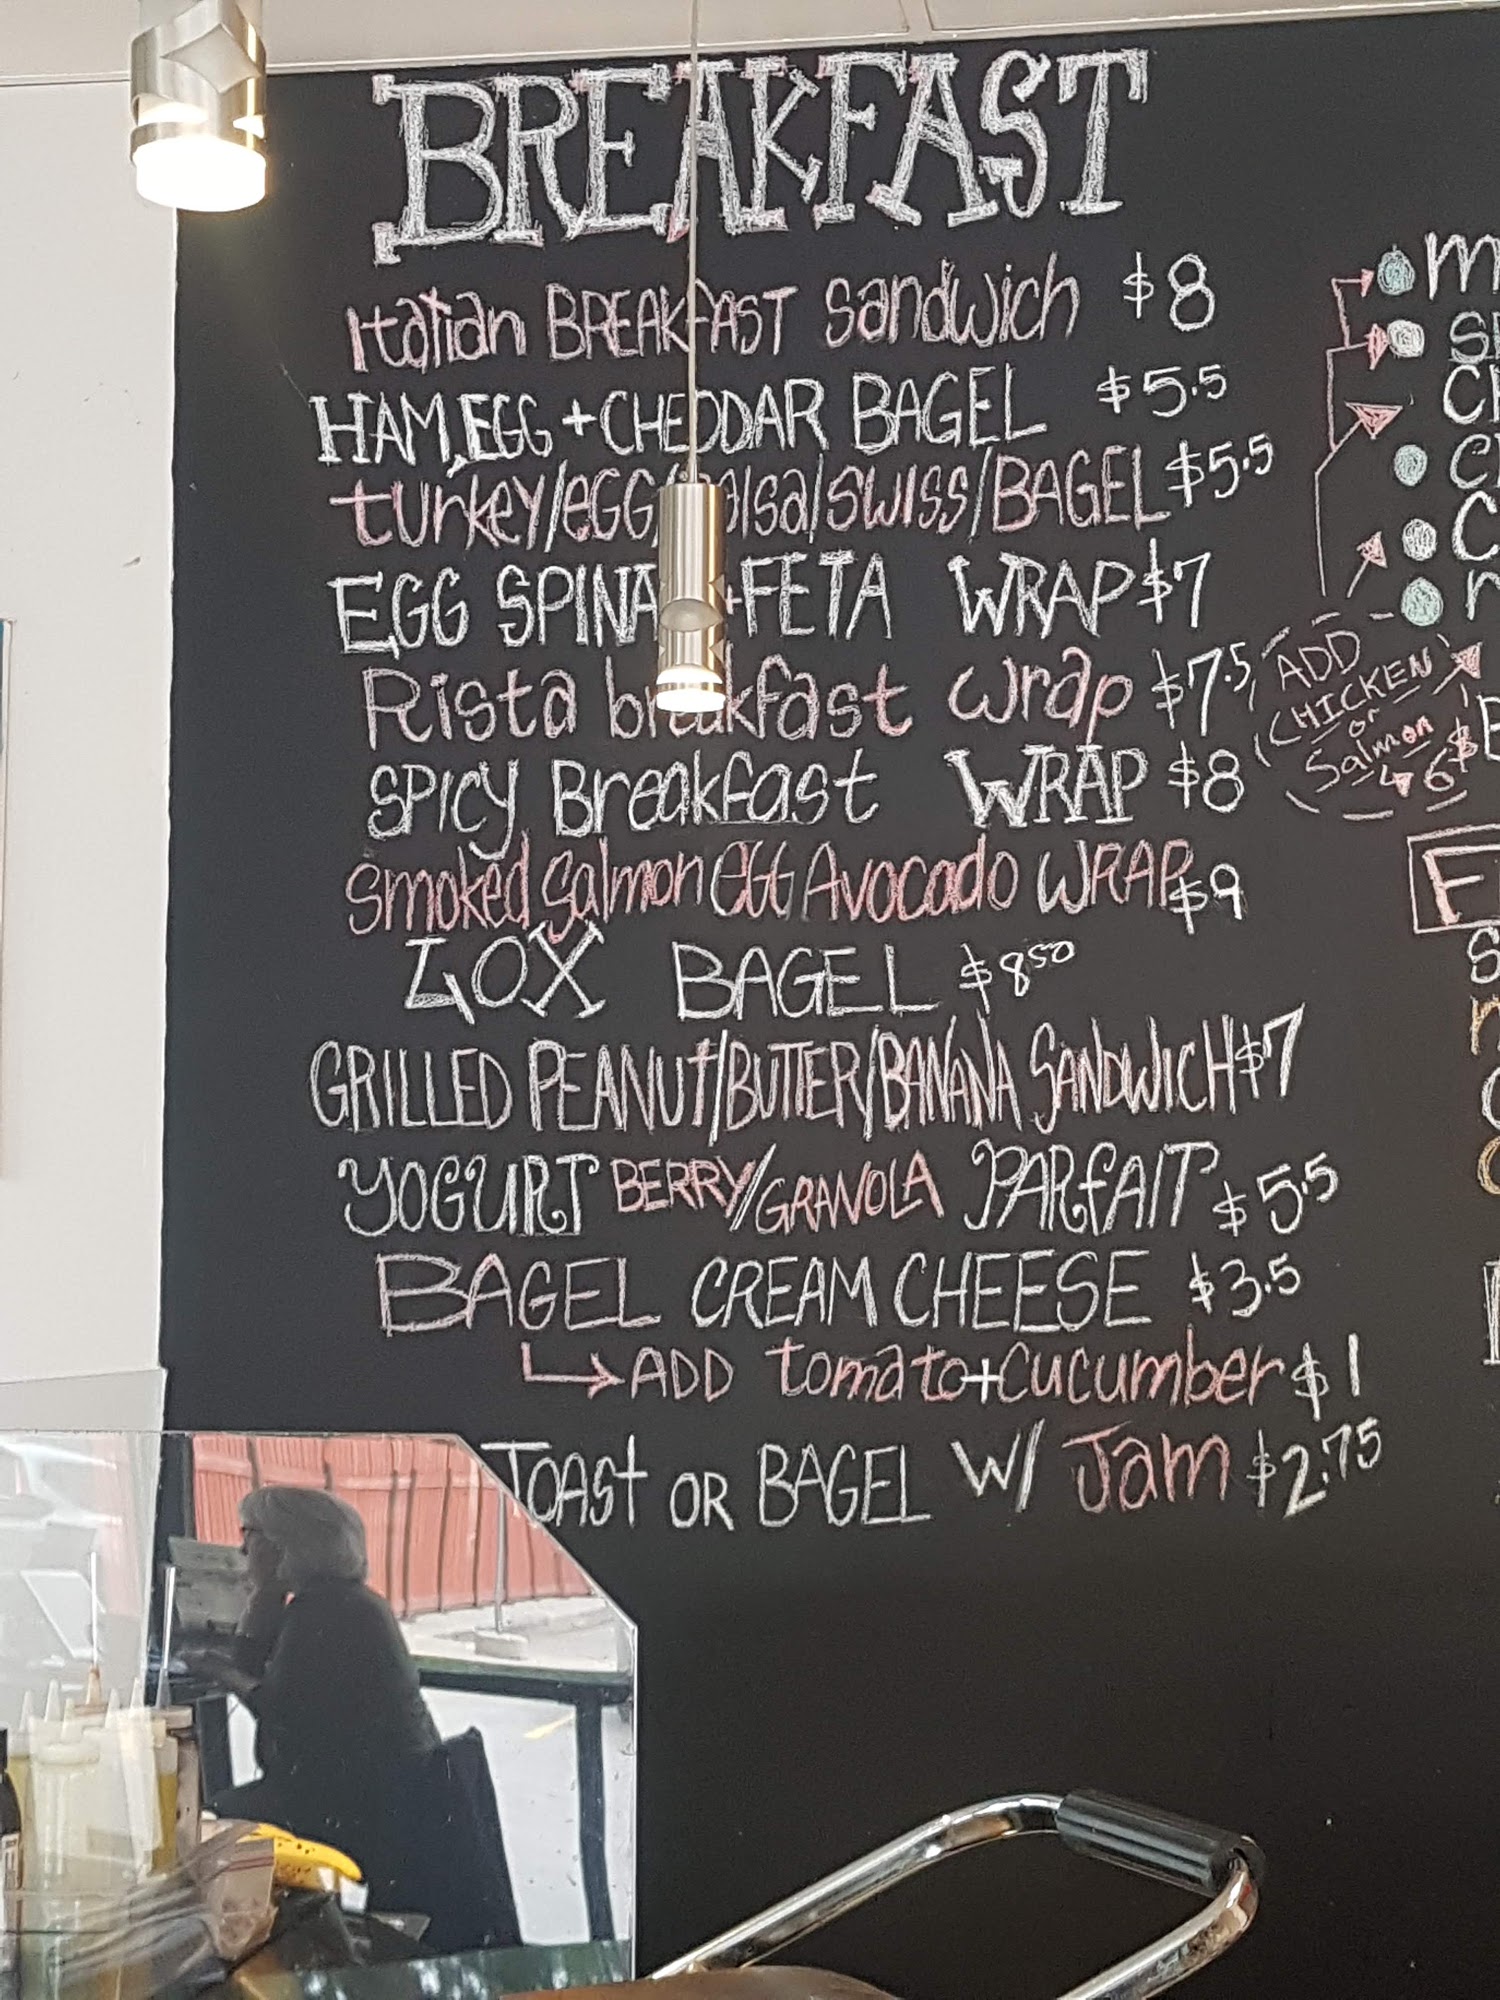 BREAKFAST
Italian BREAKFAST Sandwich $8
HAM, EGG + CHEDDAR BAGEL $5.5
turkey/EGG/ /SWISS/BAGEL $5.5
EGG +FETA WRAP $7
Rista breakfast wrap $7.5
SPICY Breakfast WRAP $8
Smoked Salmon EGG Avocado WRAP $9
LOX BAGEL $8.50
GRILLED PEANUt/BUTTER/BANANA SANDWICH $7
YOGURT BERRY/GRANOLA PARfAIT $5.5
BAGEL CREAM CHEESE $3.5
ADD tomato+cucumber $1
TOASt OR BAGEL W/ Jam $2.75
ADD
CHICKEN
or
Salmon
6$